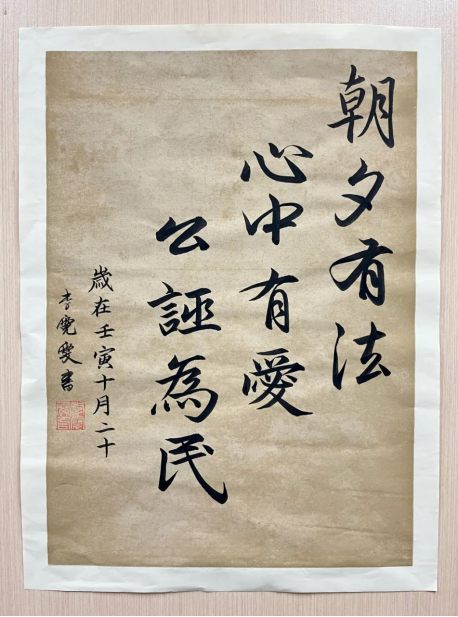 朝夕有法
心中有愛
公誣為民
歲在壬寅十月二十
李曉雯書